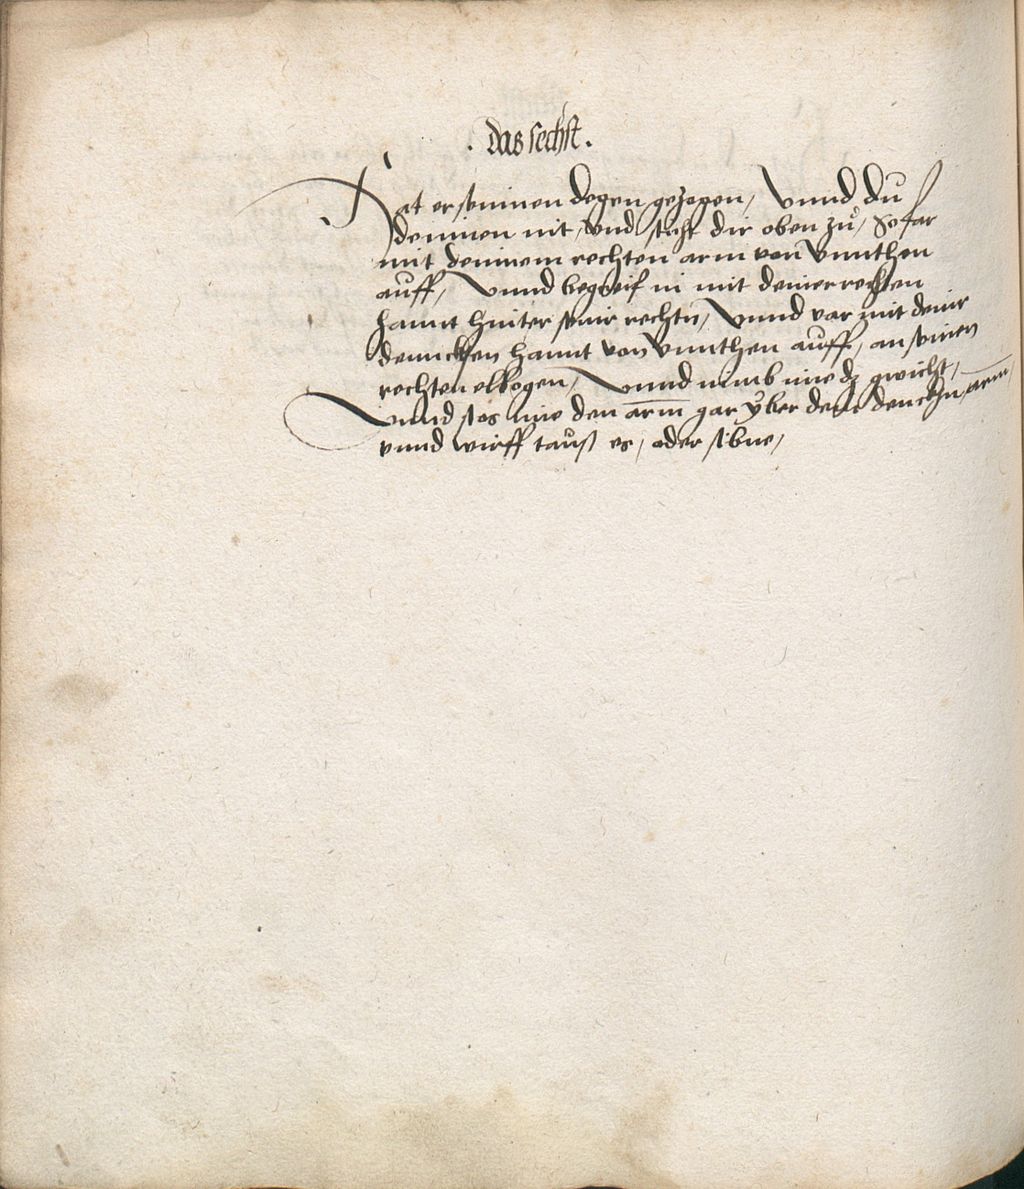 . das sechst .
Hat er seinnen degen gezogen, Vnnd du
deinnen nit, vnd sticht dir oben zů, So far
mit deinnem rechten arm von Vnnthen
auff, Vnnd begreif in mit deiner rechten
hannt hinter seinr rechtn, Vnnd var mit deinr
denncken hannt von Vnnthen auff, an seinen
rechten elbogen, Vnnd nimb ime dz gwicht,
Vnnd stos ime den arm gar yber dein denckhn arm,
vnnd wirff taus es, oder sibne,